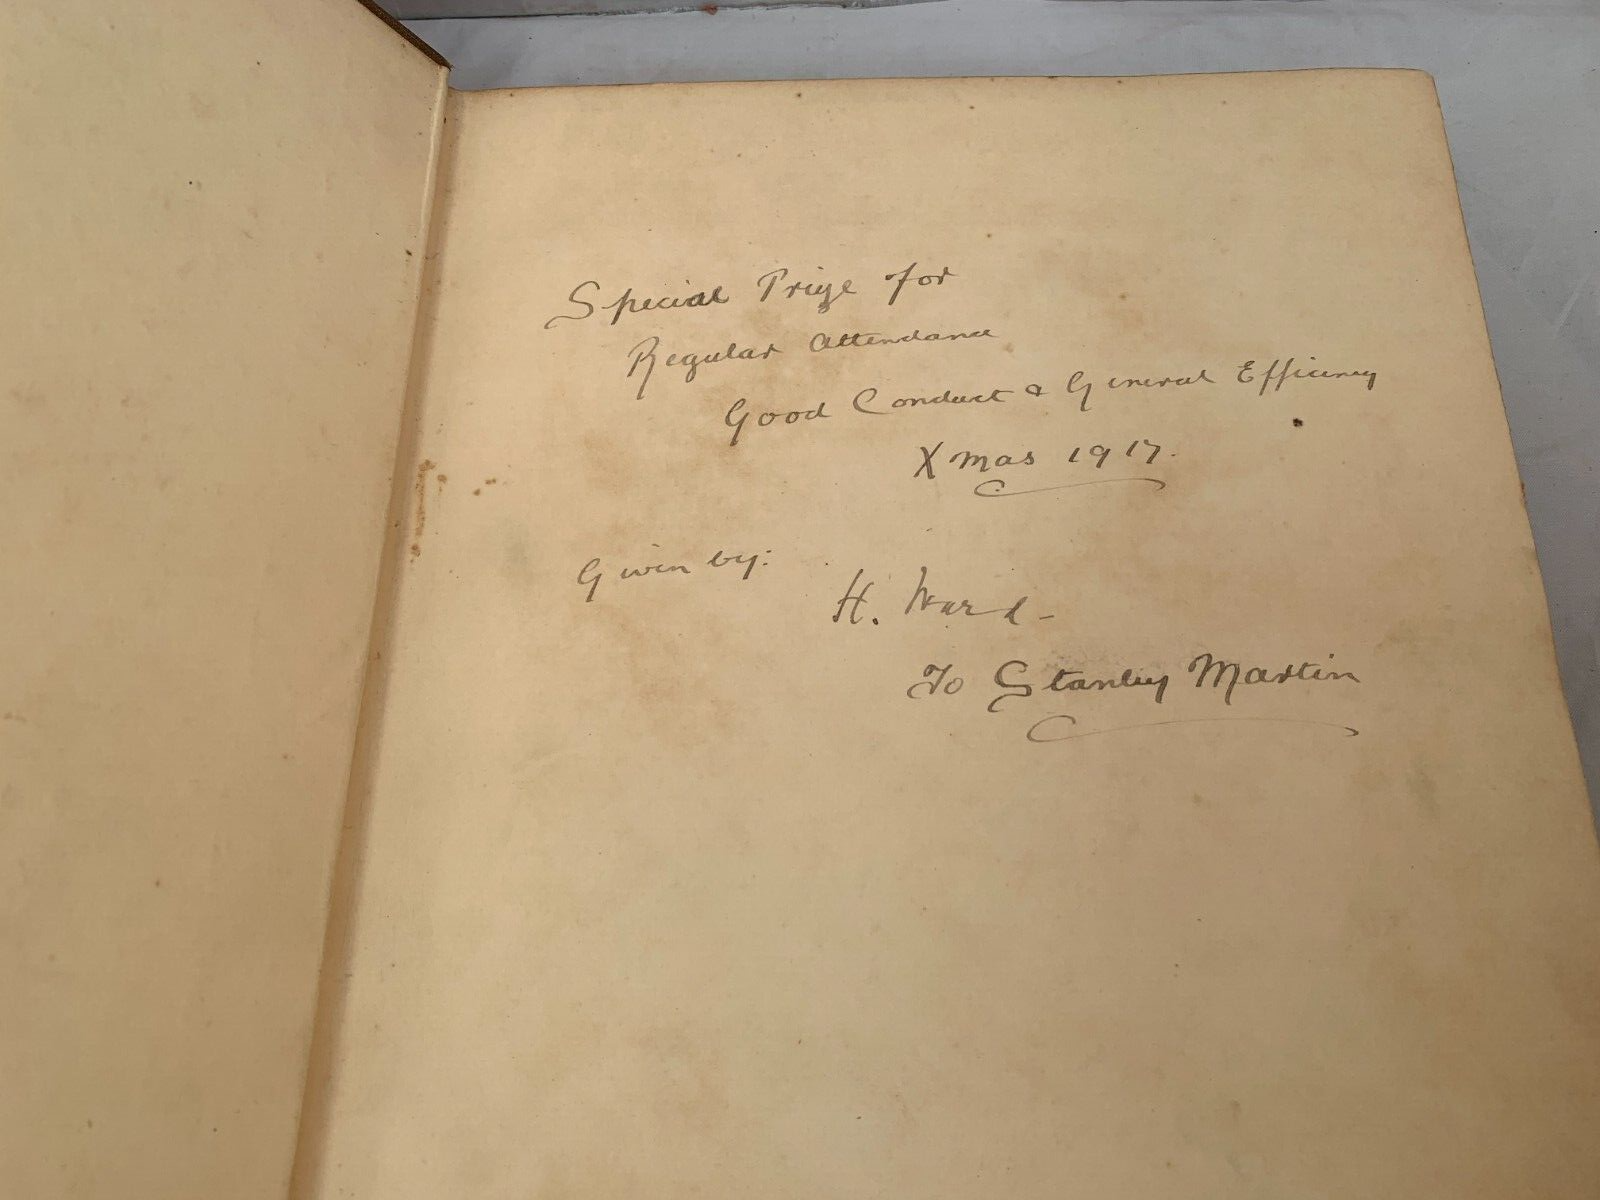 Special Prize for
Regular Attendance
Good Conduct & General Efficiency
Xmas 1917.
Given by:
H. Ward
To Stanley Martin